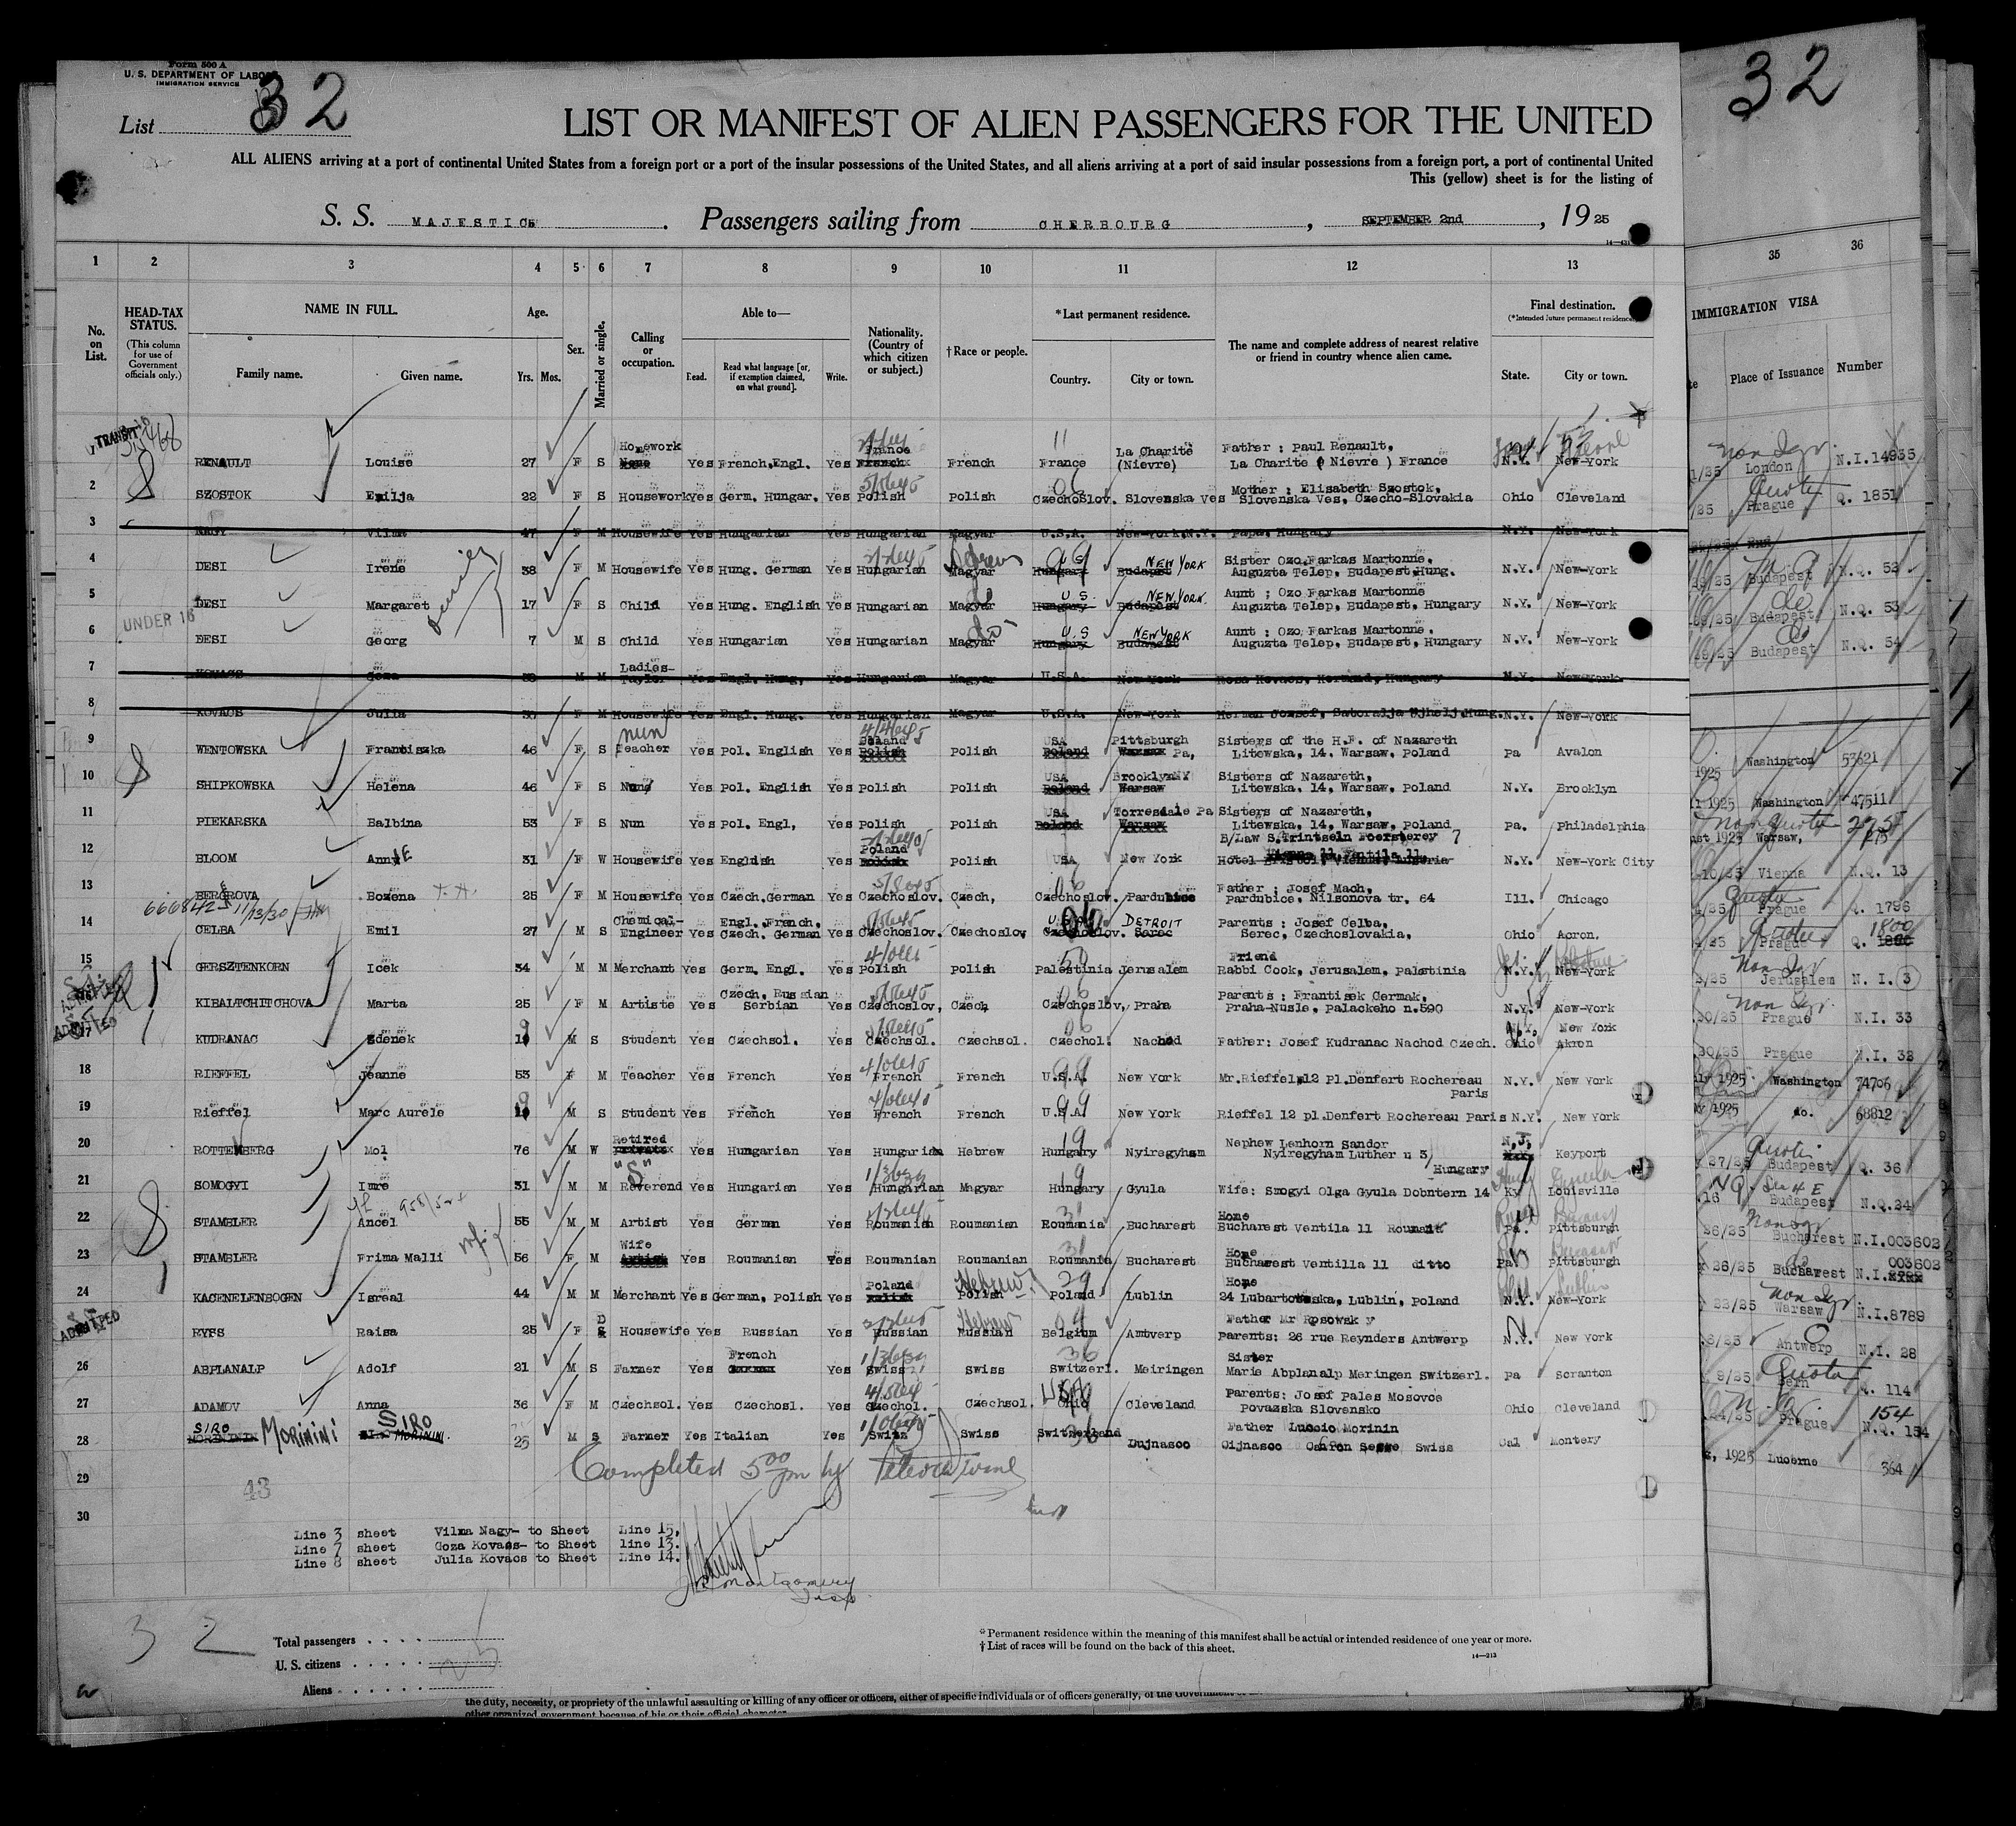 Form 500 A
U. S. DEPARTMENT OF LABOR
IMMIGRATION SERVICE
List 32
32
LIST OR MANIFEST OF ALIEN PASSENGERS FOR THE UNITED
ALL ALIENS arriving at a port of continental United States from a foreign port or a port of the insular possessions of the United States, and all aliens arriving at a port of said insular possessions from a foreign port, a port of continental United
This (yellow) sheet is for the listing of
S. S. MAJESTIC. Passengers sailing from CHERBOURG, SEPTEMBER 2nd, 19 25
1 2 3 4 5 6 7 8 9 10 11 12 13 35 36
No. on List.
HEAD-TAX STATUS.
(This column for use of Government officials only.)
NAME IN FULL.
Family name. Given name.
Age. Yrs. Mos.
Sex.
Married or single.
Calling or occupation.
Able to—
Read. Read what language [or, if exemption claimed, on what ground]. Write.
Nationality. (Country of which citizen or subject.)
†Race or people.
*Last permanent residence.
Country. City or town.
The name and complete address of nearest relative or friend in country whence alien came.
Final destination.
(*Intended future permanent residence.)
State. City or town.
IMMIGRATION VISA
Place of Issuance Number
TRANSIT RENAULT Louise 27 F S Homework None Yes French,Engl. Yes France French French France La Charité (Nievre) Father : Paul Renault, La Charite ( Nievre ) France N.Y. New-York 1/25 London N.I.14935
2 SZOSTOK Emilja 22 F S Housework Yes Germ. Hungar. Yes Polish Polish Czechoslov. Slovenska Ves Mother : Elisabeth Szostok, Slovenska Ves, Czecho-Slovakia Ohio Cleveland /25 Prague Q. 1851
3 NAGY Vilma 47 F M Housewife Yes Hungarian Yes Hungarian Magyar U.S.A. New-York,N.Y. Papa, Hungary N.Y. New-York
4 DESI Irene 38 F M Housewife Yes Hung. German Yes Hungarian Magyar Hungary Budapest NEW YORK Sister Ozo.Farkas Martonne, Auguzta Telep, Budapest,Hung. N.Y. New-York Budapest N.Q. 52
5 DESI Margaret 17 F S Child Yes Hung. English Yes Hungarian Magyar U.S. Hungary NEW YORK. Budapest Aunt : Ozo Farkas Martonne Auguzta Telep, Budapest, Hungary N.Y. New-York Budapest N.Q. 53
6 UNDER 16 DESI Georg 7 M S Child Yes Hungarian Yes Hungarian Magyar U.S Hungary NEW YORK Budapest Aunt : Ozo Farkas Martonne, Auguzta Telep, Budapest, Hungary N.Y. New-York Budapest N.Q. 54
7 KOVACS Goza M M Ladies-Taylor Yes Engl. Hung, Yes Hungarian Magyar U.S.A. New-York Roza Kovacs, Kormand, Hungary N.Y. New-York.
8 KOVACS Julia F M Housewife Yes Engl. Hung. Yes Hungarian Magyar U.S.A. New-York Herman Jozsef, Satoralja Ujhelj,Hung. N.Y. New-York
9 WENTOWSKA Franciszka 46 F S nun Teacher Yes Pol. English Yes Poland Polish Polish USA Poland Pittsburgh Warsaw Pa, Sisters of the H.F. of Nazareth Litewska, 14. Warsaw, Poland Pa Avalon 1925 Washington 53621
10 SHIPKOWSKA Helena 46 F S Nun Yes Pol. English Yes Polish Polish USA Poland Brooklyn NY Warsaw Sisters of Nazareth, Litewska, 14. Warsaw, Poland N.Y. Brooklyn 1925 Washington 47511
11 PIEKARSKA Balbina 53 F S Nun Yes Pol. Engl, Yes Polish Polish USA Poland Torresdale Pa Warsaw Sisters of Nazareth, Litewska, 14, Warsaw, Poland Pa. Philadelphia 1925 Warsaw, 275
12 BLOOM Annie 31 F W Housewife Yes English Yes Poland Polish Polish USA New York B/Law S.Trintseln Foersterey 7 N.Y. New-York City 10/25 Vienna N.Q. 13
13 BERGROVA Bozena 25 F M Housewife Yes Czech.German Yes Czechoslov. Czech, Czechoslov. Pardubice Father : Josef Mach, Pardubice, Nilsonova tr. 64 Ill. Chicago Prague Q. 1796
666842 11/13/30
14 CELBA Emil 27 M S Chemical-Engineer Yes Engl. French, Czech. German Yes Czechoslov. Czechoslov. Czechoslov. DETROIT Serec Parents : Josef Celba, Serec, Czechoslovakia, Ohio Acron. Prague Q. 1800
15 GERSZTENKORN Icek 34 M M Merchant Yes Germ. Engl. Yes Polish Polish Palestinia Jerusalem Friend Rabbi Cook, Jerusalem, Palestinia N.Y. New-York Jerusalem N. I. 3
KIBALTCHITCHOVA Marta 25 F M Artiste Yes Czech, Russian Serbian Yes Czechoslov, Czech, Czechoslov, Praha Parents : Frantisek Cermak, Praha-Nusle, Palackeho n.590 N.Y. New-York 20/25 Prague N.I. 33
ADMITTED 17 KUDRANAC Zdenek 19 M S Student Yes Czechsol. Yes Czechsol. Czechsol. Czechol. Nachod Father: Josef Kudranac Nachod Czech. N.Y. Ohio New York Akron 30/25 Prague N.I. 32
18 RIEFFEL Jeanne 53 F M Teacher Yes French Yes French French U.S.A. New York Mr.Rieffel,12 Pl.Denfert Rochereau Paris N.Y. New York 1925 Washington 74706
19 Rieffel Marc Aurele 19 M S Student Yes French Yes French French U.S.A. New York Rieffel 12 pl.Denfert Rochereau Paris N.Y. New York 1925 do. 68812
20 ROTTENBERG Mol 76 M W Retired Yes Hungarian Yes Hungarian Hebrew Hungary Nyiregyham Nephew Lenhorn Sandor Nyiregyham Luther u 3/ Hungary N.J. Keyport 27/25 Budapest Q. 36
21 SOMOGYI Imre 31 M M "S" Reverend Yes Hungarian Yes Hungarian Magyar Hungary Gyula Wife: Smogyi Olga Gyula Dobntern 14 Ky Louisville 16 Budapest N.Q.24
22 STAMBLER Ancel 55 M M Artist Yes German Yes Roumanian Roumanian Roumania Bucharest Home Bucharest Ventila 11 Pa. Pittsburgh 26/25 Bucharest N.I.003602
23 STAMBLER Frima Malli 56 F M Wife Artist Yes Roumanian Yes Roumanian Roumanian Roumania Bucharest Home Bucharest Ventilla 11 ditto Pa Pittsburgh 26/25 Bucharest 003602 N.I.
24 KACENELENBOGEN Isreal 44 M M Merchant Yes German, Polish Yes Poland Polish Hebrew Polish Poland Lublin Home 24 Lubartowska, Lublin, Poland N.Y. New-York 22/25 Warsaw N.I.8789
ADMITTED RVFS Raisa 25 F D Housewife Yes Russian Yes Russian Hebrew Russian Belgium Antverp Father Mr Rosowsky Parents: 26 rue Reynders Antwerp N.Y. New York 8/25 Antwerp N.I. 28
26 ABPLANALP Adolf 21 M S Farmer Yes French Yes Swiss Swiss Switzerl. Meiringen Sister Marie Abplanalp Meringen Switzerl. Pa Scranton 9/25 Bern Q. 114
27 ADAMOV Anna 36 F M Czechsol. Yes Czechosl. Yes Czechol. Czechsol. USA Ohio Cleveland Parents: Josef Pales Mosovce Povazska Slovensko Ohio Cleveland 24/25 Prague 154 N.Q. 154
28 SIRO MORININI SIRO MORININI. 25 M S Farmer Yes Italian Yes Switz Swiss Switzerland Dujnasco Father Luccio Morinin Oijnasco Swiss Cal Montery 1925 Lucerne 364
29 Completed 5 00 pm by
43
30
Line 3 sheet Vilma Nagy- to Sheet Line 15,
Line 7 sheet Goza Kovacs- to Sheet line 13.
Line 8 sheet Julia Kovacs to Sheet Line 14.
Montgomery
Insp
3 2
Total passengers
U. S. citizens
Aliens
*Permanent residence within the meaning of this manifest shall be actual or intended residence of one year or more.
†List of races will be found on the back of this sheet.
14—213
the duty, necessity, or propriety of the unlawful assaulting or killing of any officer or officers, either of specific individuals or of officers generally, of the Government
other organized government because of his or their official character